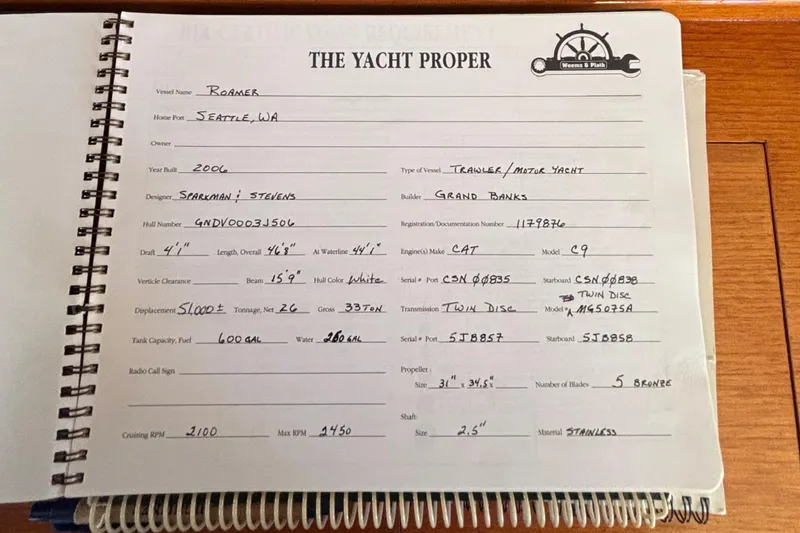 THE YACHT PROPER
Weems & Plath
Vessel Name ROAMER
Home Port SEATTLE, WA
Owner
Year Built 2006 Type of Vessel TRAWLER/MOTOR YACHT
Designer SPARKMAN & STEVENS Builder GRAND BANKS
Hull Number GNDV0003J506 Registration/Documentation Number 1179876
Draft 4'1" Length, Overall 46'8" At Waterline 44'1" Engine(s) Make CAT Model C9
Verticle Clearance Beam 15'9" Hull Color White Serial # Port CSN 00835 Starboard CSN 00838
Displacement 51,000± Tonnage, Net 26 Gross 33 TON Transmission TWIN DISC Model # TWIN DISC MG5075A
Tank Capacity, Fuel 600 GAL Water GAL Serial # Port 5JB857 Starboard 5JB858
Radio Call Sign
Propeller:
Size 31" x 34.5" Number of Blades 5 BRONZE
Shaft:
Cruising RPM 2100 Max RPM 2450 Size 2.5" Material STAINLESS